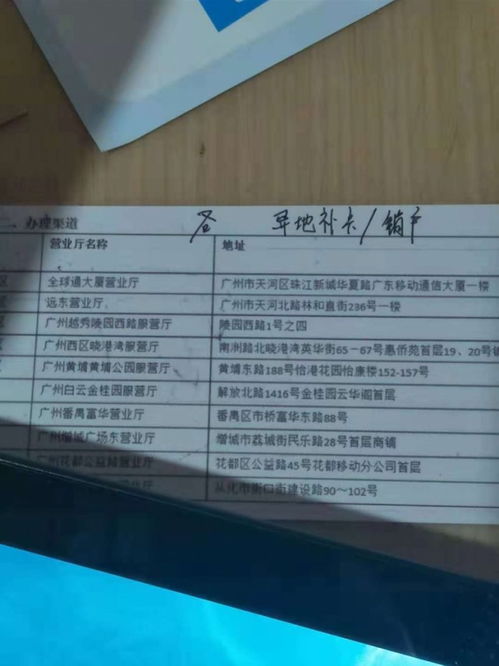 、办理渠道 异地补卡/销户
营业厅名称 地址
区 全球通大厦营业厅 广州市天河区珠江新城华夏路广东移动通信大厦一楼
远东营业厅、 广州市天河北路林和直街236号一楼
广州越秀陵园西路服营厅 陵园西路1号之四
广州西区晓港湾服营厅 南洲路北晓港湾英华街65－67号惠侨苑首层19、20号铺
广州黄埔黄埔公园服营厅 黄埔东路188号怡港花园怡康楼152-157号
广州白云金桂园服营厅 解放北路1416号金桂园云华阁首层
广州番禺富华营业厅 番禺区市桥富华东路88号
广州增城广场东营业厅 增城市荔城街民乐路28号首层商铺
广州花都公益路营业厅 花都区公益路45号花都移动分公司首层
业厅 从化市街口街建设路90～102号